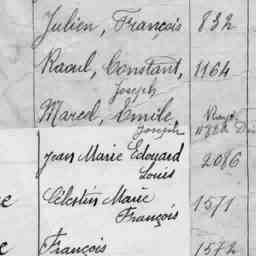 Julien, François 832
Raoul, Constant, 1164
Joseph
Marcel, Emile,
Joseph
Jean Marie Edouard 2086
Louis
Célestin Marie 1571
François
François 1572